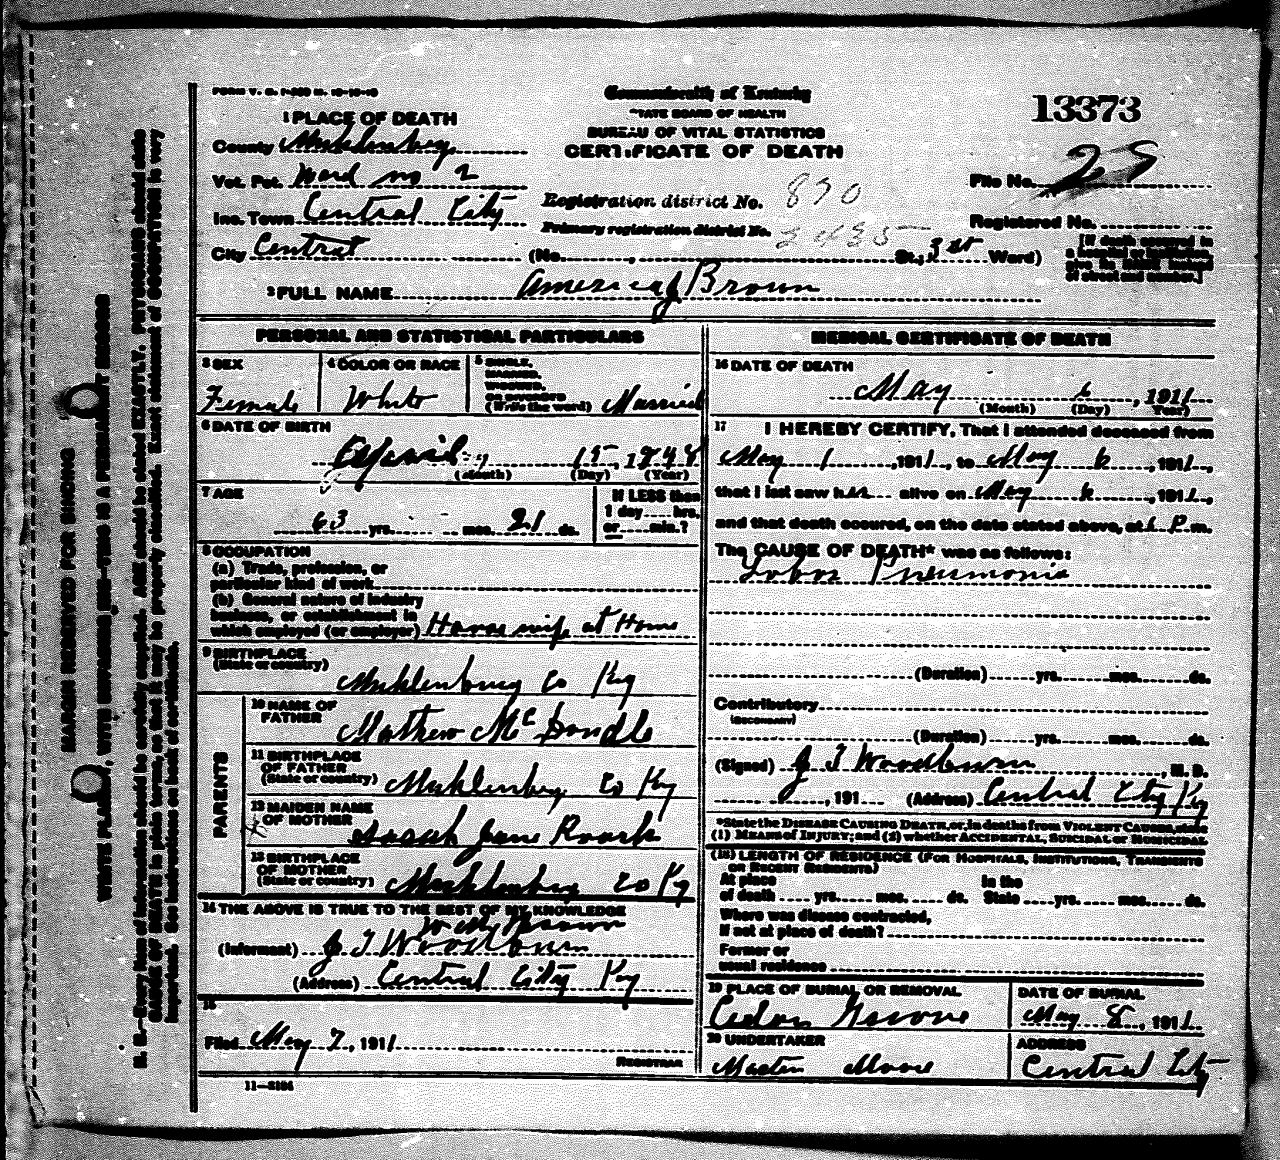 FORM V. S. 1-350 M. 10-10-10
Commonwealth of Kentucky
STATE BOARD OF HEALTH
BUREAU OF VITAL STATISTICS
CERTIFICATE OF DEATH
13373
1 PLACE OF DEATH
County Muhlenburg
Vot. Pct. Ward no 2
Inc. Town Central City
City Central
Registration district No. 890
Primary registration district No. 2435
File No. 28
Registered No.
(No. , St.; 3 Ward)
[If death occurred in
a hospital or institution,
give its NAME instead
of street and number.]
2 FULL NAME America J Brown
PERSONAL AND STATISTICAL PARTICULARS
3 SEX
Female
4 COLOR OR RACE
White
5 SINGLE,
MARRIED,
WIDOWED,
OR DIVORCED
(Write the word) Married
6 DATE OF BIRTH
April 15, 1848
(Month) (Day) (Year)
7 AGE
63 yrs. mos. 21 ds.
If LESS than
1 day hrs.
or min.?
8 OCCUPATION
(a) Trade, profession, or
particular kind of work
(b) General nature of industry
business, or establishment in
which employed (or employer) House wife at Home
9 BIRTHPLACE
(State or country)
Muhlenburg Co Ky
PARENTS
10 NAME OF
FATHER
Mathew McDondle
11 BIRTHPLACE
OF FATHER
(State or country) Muhlenburg Co Ky
12 MAIDEN NAME
OF MOTHER
Sarah Jane Roark
13 BIRTHPLACE
OF MOTHER
(State or country) Muhlenburg Co Ky
14 THE ABOVE IS TRUE TO THE BEST OF MY KNOWLEDGE
W M Brown
(Informant) J T Woodburn
(Address) Central City Ky
15
Filed May 7, 1911
REGISTRAR
11-3184
MEDICAL CERTIFICATE OF DEATH
16 DATE OF DEATH
May 6, 1911
(Month) (Day) Year)
17 I HEREBY CERTIFY, That I attended deceased from
May 1, 1911, to May 6, 1911,
that I last saw her alive on May 6, 1911,
and that death occured, on the date stated above, at 6 P m.
The CAUSE OF DEATH* was as follows:
Lobar Pneumonia
(Duration) yrs. mos. ds.
Contributory
(SECONDARY)
(Duration) yrs. mos. ds.
(Signed) J T Woodburn, M. D.
, 191 (Address) Central City Ky
*State the DISEASE CAUSING DEATH, or, in deaths from VIOLENT CAUSES, state
(1) MEANS OF INJURY; and (2) whether ACCIDENTAL, SUICIDAL or HOMICIDAL
(18) LENGTH OF RESIDENCE (FOR HOSPITALS, INSTITUTIONS, TRANSIENTS
OR RECENT RESIDENTS)
At place
of death yrs. mos. ds.
In the
State yrs. mos. ds.
Where was disease contracted,
If not at place of death?
Former or
usual residence
19 PLACE OF BURIAL OR REMOVAL
Cedar Grove
DATE OF BURIAL
May 8, 1911
20 UNDERTAKER
Martin Moore
ADDRESS
Central City
MARGIN RESERVED FOR BINDING
WRITE PLAINLY, WITH UNFADING INK—THIS IS A PERMANENT RECORD
N. B.—Every item of information should be carefully supplied. AGE should be stated EXACTLY. PHYSICIANS should state
CAUSE OF DEATH in plain terms, so that it may be properly classified. Exact statement of OCCUPATION is very
important. See instructions on back of certificate.